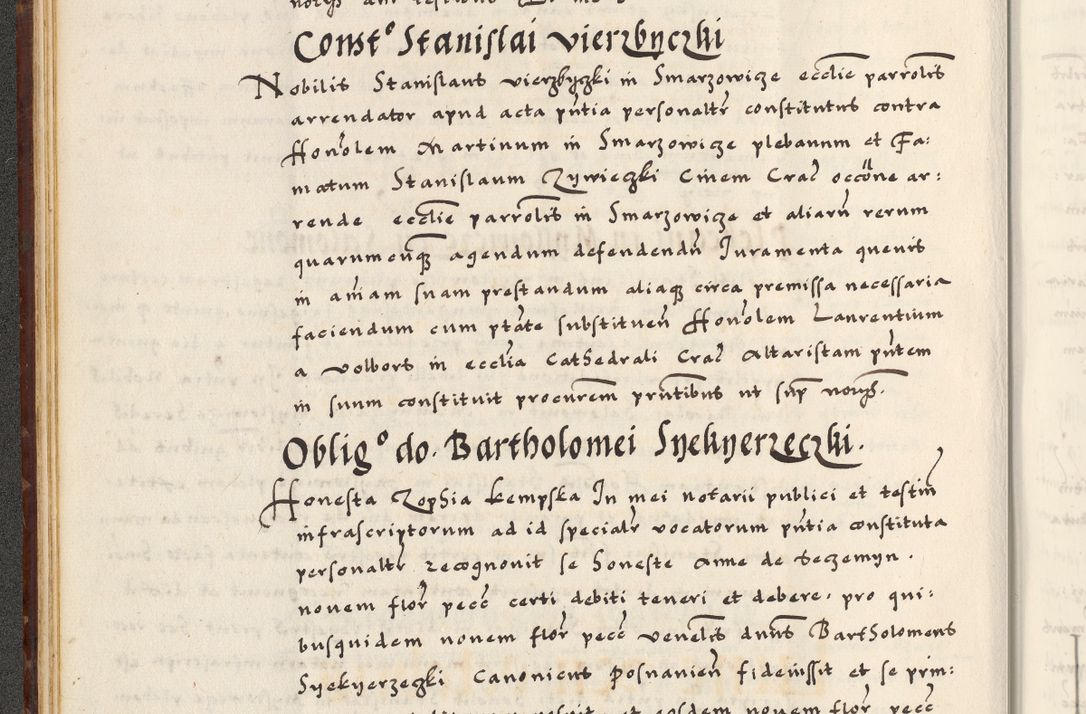 Constᵒ Stanislai vierzbyczki
Nobilis Stanislaus vierzbyczki in Smarzowicze ecclie parrolis
arrendator apud acta pñtia personaltr constitutus contra
Honolem Martinum in Smarzowicze plebanum et Fa:
matum Stanislaum Zywieczki Civem Crac occone ar:
rende ecclie parrolis in Smarzowicze et aliarũ rerum
quarumcunq agendum defendendũ Juramenta quevis
in aiam suam prestandum aliaq circa premissa necessaria
faciendum cum ptate substituen Honolem Laurentium
a volbors in ecclia Cathedrali Crac Altaristam pñtem
in suum constituit procurem prñtibus ut sup notarys.
Obligᵒ do. Bartholomei Syekyerzeczki.
Honesta Zophia kempska In mei notarii publici et testiũ
infrascriptorum ad id specialr vocatorum pñtia constituta
personaltr recognovit se honeste Anne de teczemyn.
novem flor pecc certi debiti teneri et debere, pro qui:
busquidem novem flor pecc venelis dnus Bartholomeus
Syekyerzeczki Canonicus Posnanien fideiussit et se prin:
et eosdem novem flor pecc